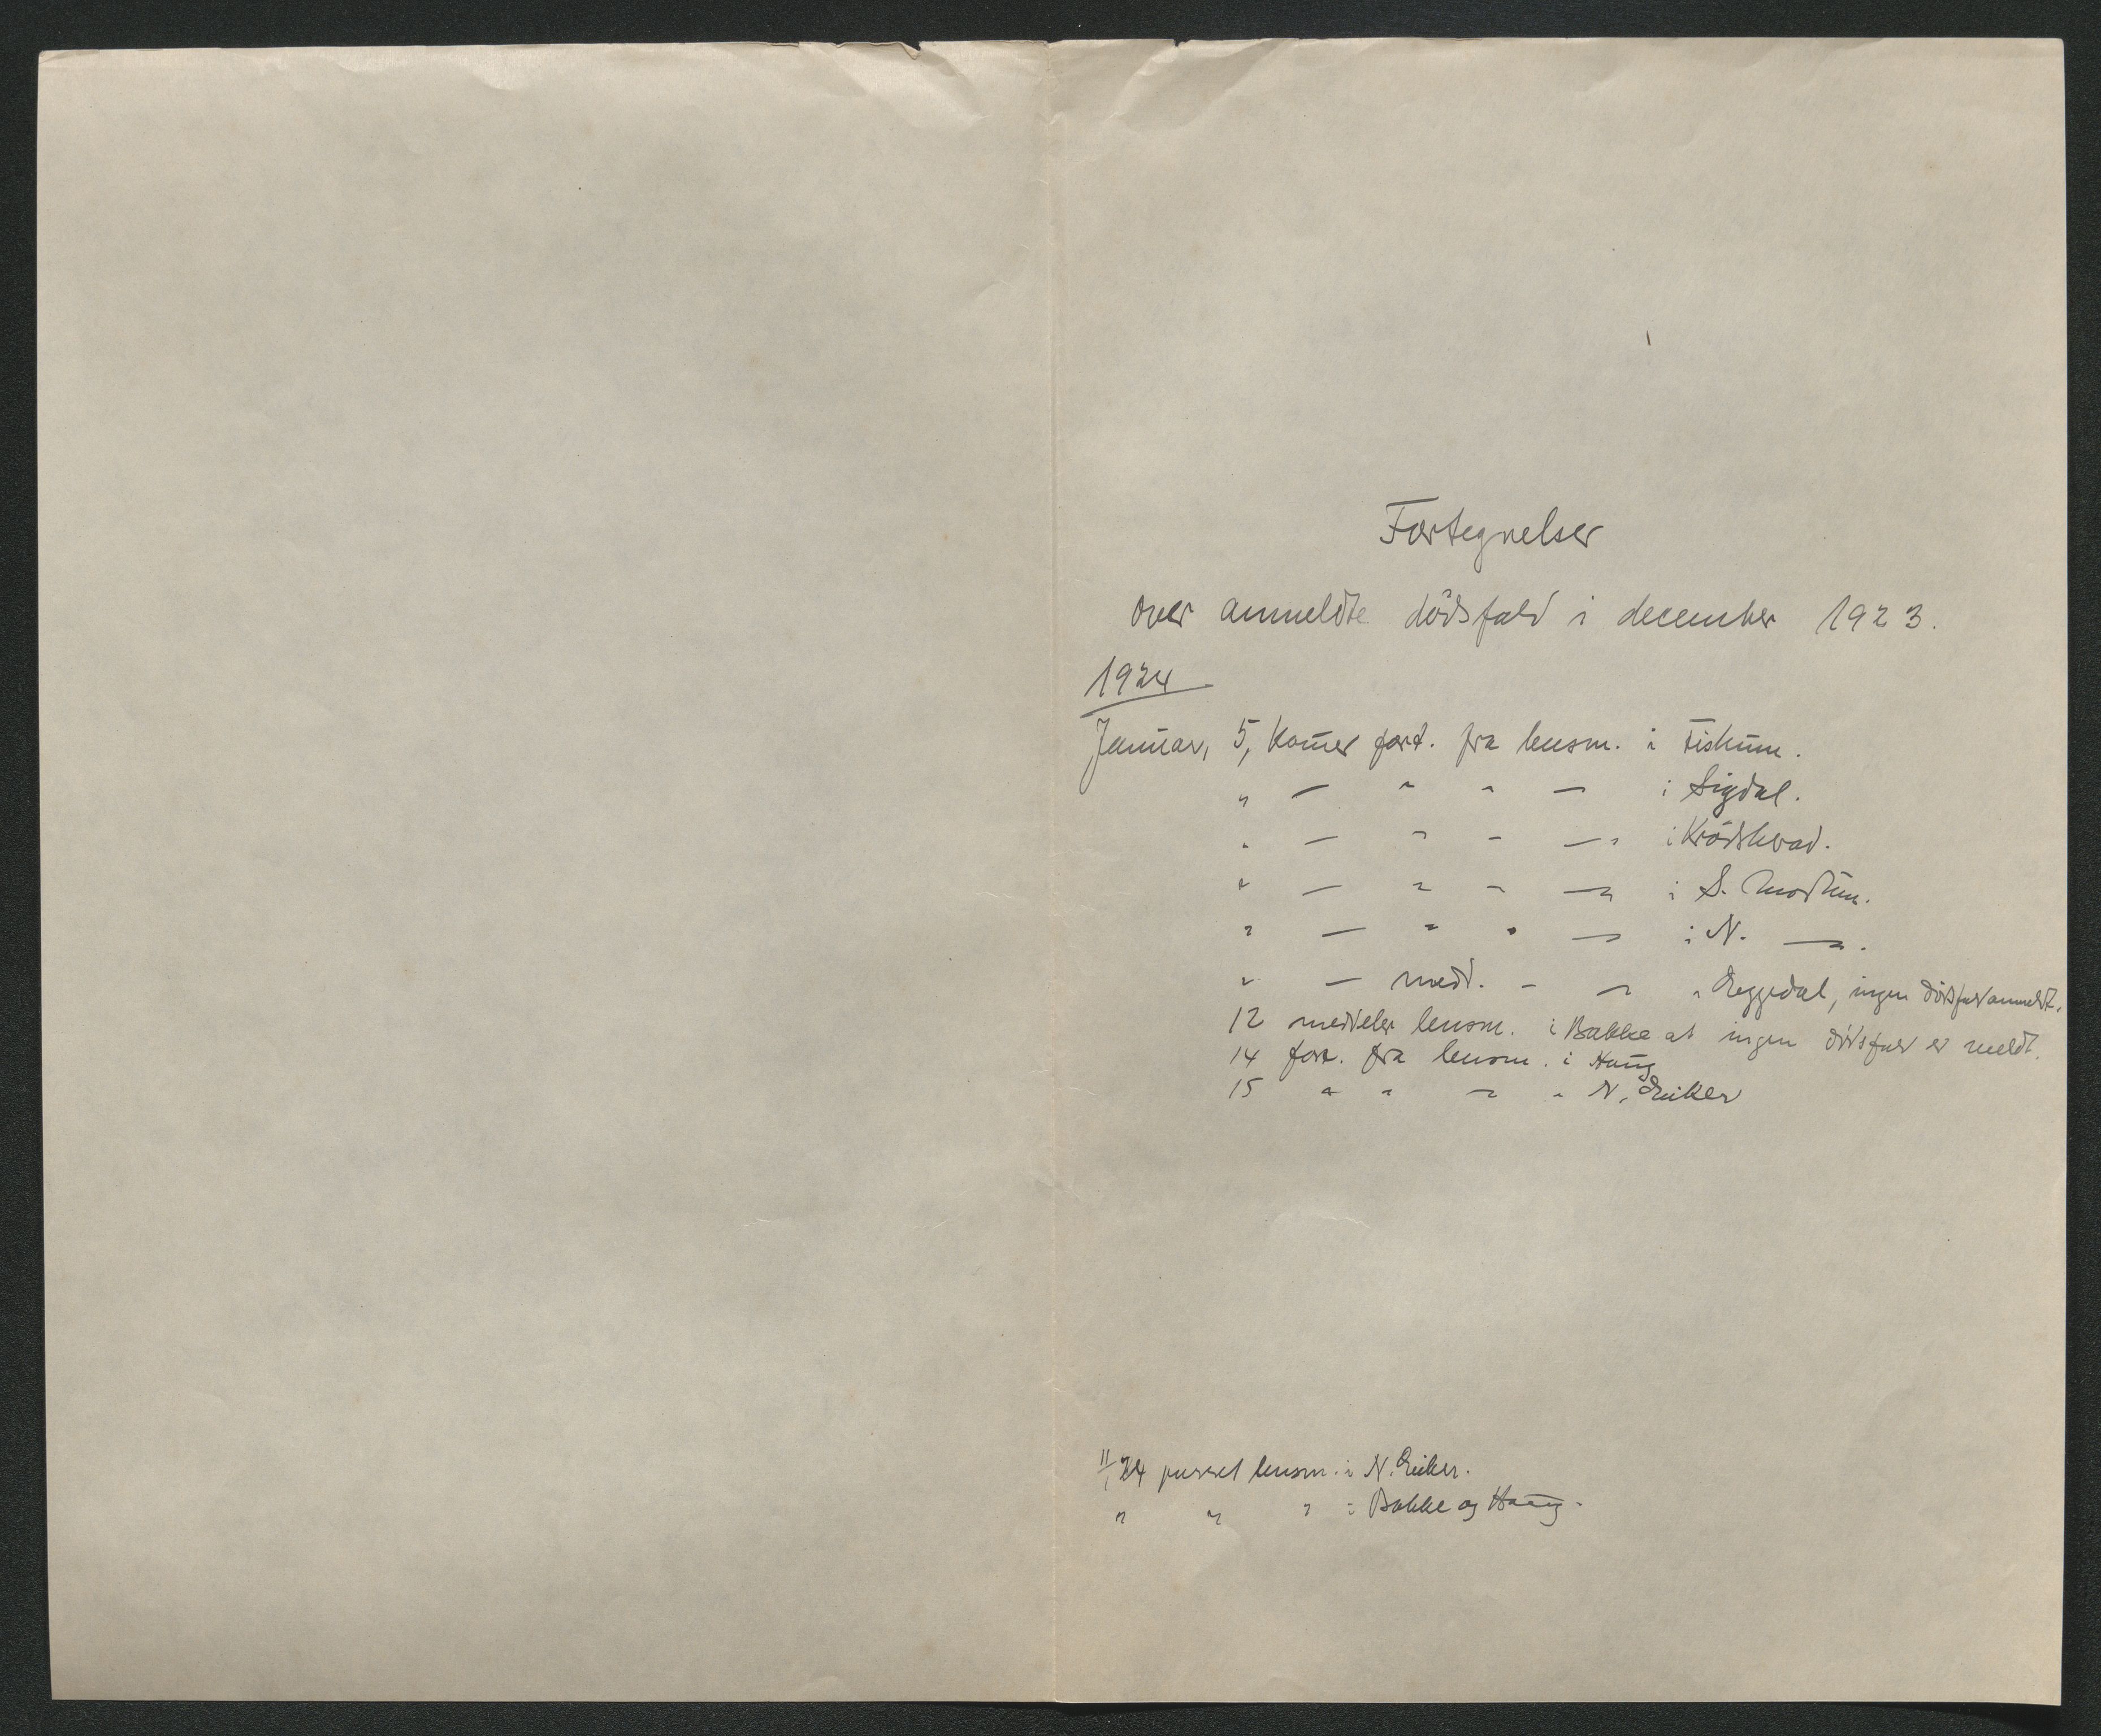 Fortegnelser
over anmeldte dödsfald i december 1923.
1924
Januar, 5, komer fort. fra lensm. i Fiskum.
" — " " — i Sigdal.
" — " " —" i Krödsherad.
" — " " —" i S. Modum.
" — " " —" i N. —".
" — medd. " —" " Eggedal, ingen dödsfald anmeldt.
12 meddeler lensm. i Bakke at ingen dödsfald er meldt.
14 fort. fra lensm. i Haug
15 " " —" " N. Eiker
11/1 24 purret lensm. i N. Eiker.
" " " i Bakke og Haug.